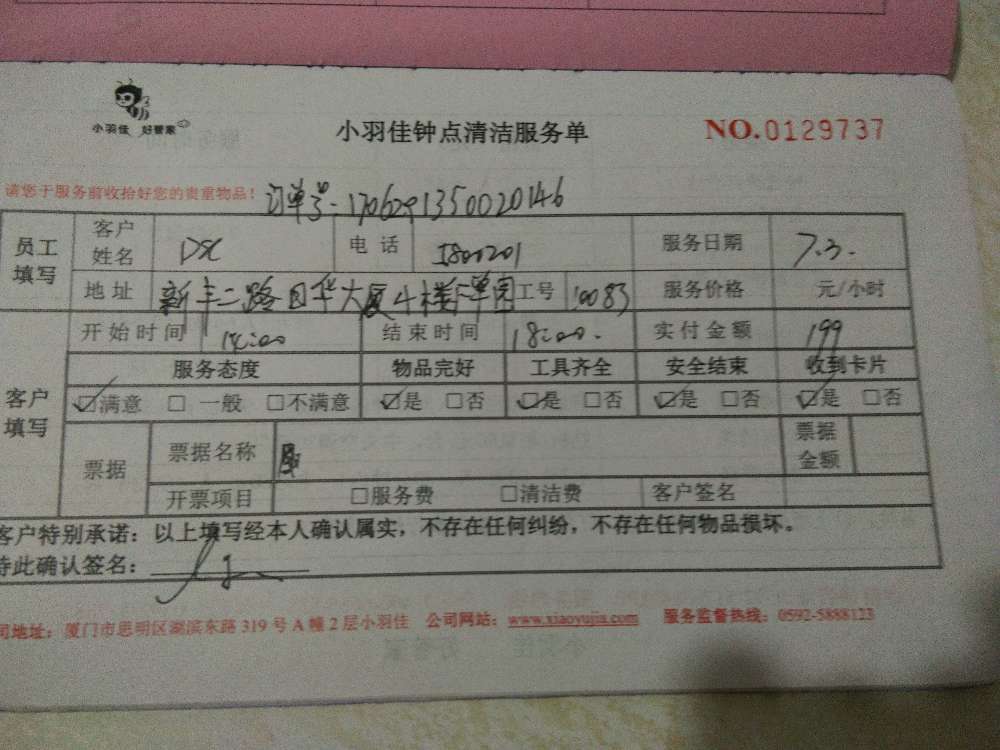 小羽佳 好管家
小羽佳钟点清洁服务单
NO.0129737
请您于服务前收拾好您的贵重物品!
订单号:1706291350020146
员工填写 客户姓名 电话 1800201 服务日期 7.3.
地址 新丰二路日华大厦4楼 单 工号 10083 服务价格 元/小时
客户填写 开始时间 14:00 结束时间 18:00. 实付金额 199
服务态度 物品完好 工具齐全 安全结束 收到卡片
☑满意 □一般 □不满意 ☑是 □否 ☑是 □否 ☑是 □否 ☑是 □否
票据 票据名称 票据金额
开票项目 □服务费 □清洁费 客户签名
客户特别承诺:以上填写经本人确认属实,不存在任何纠纷,不存在任何物品损坏。
特此确认签名:
司地址:厦门市思明区湖滨东路319号A幢2层小羽佳 公司网站:www.xiaoyujia.com 服务监督热线:0592-5888123